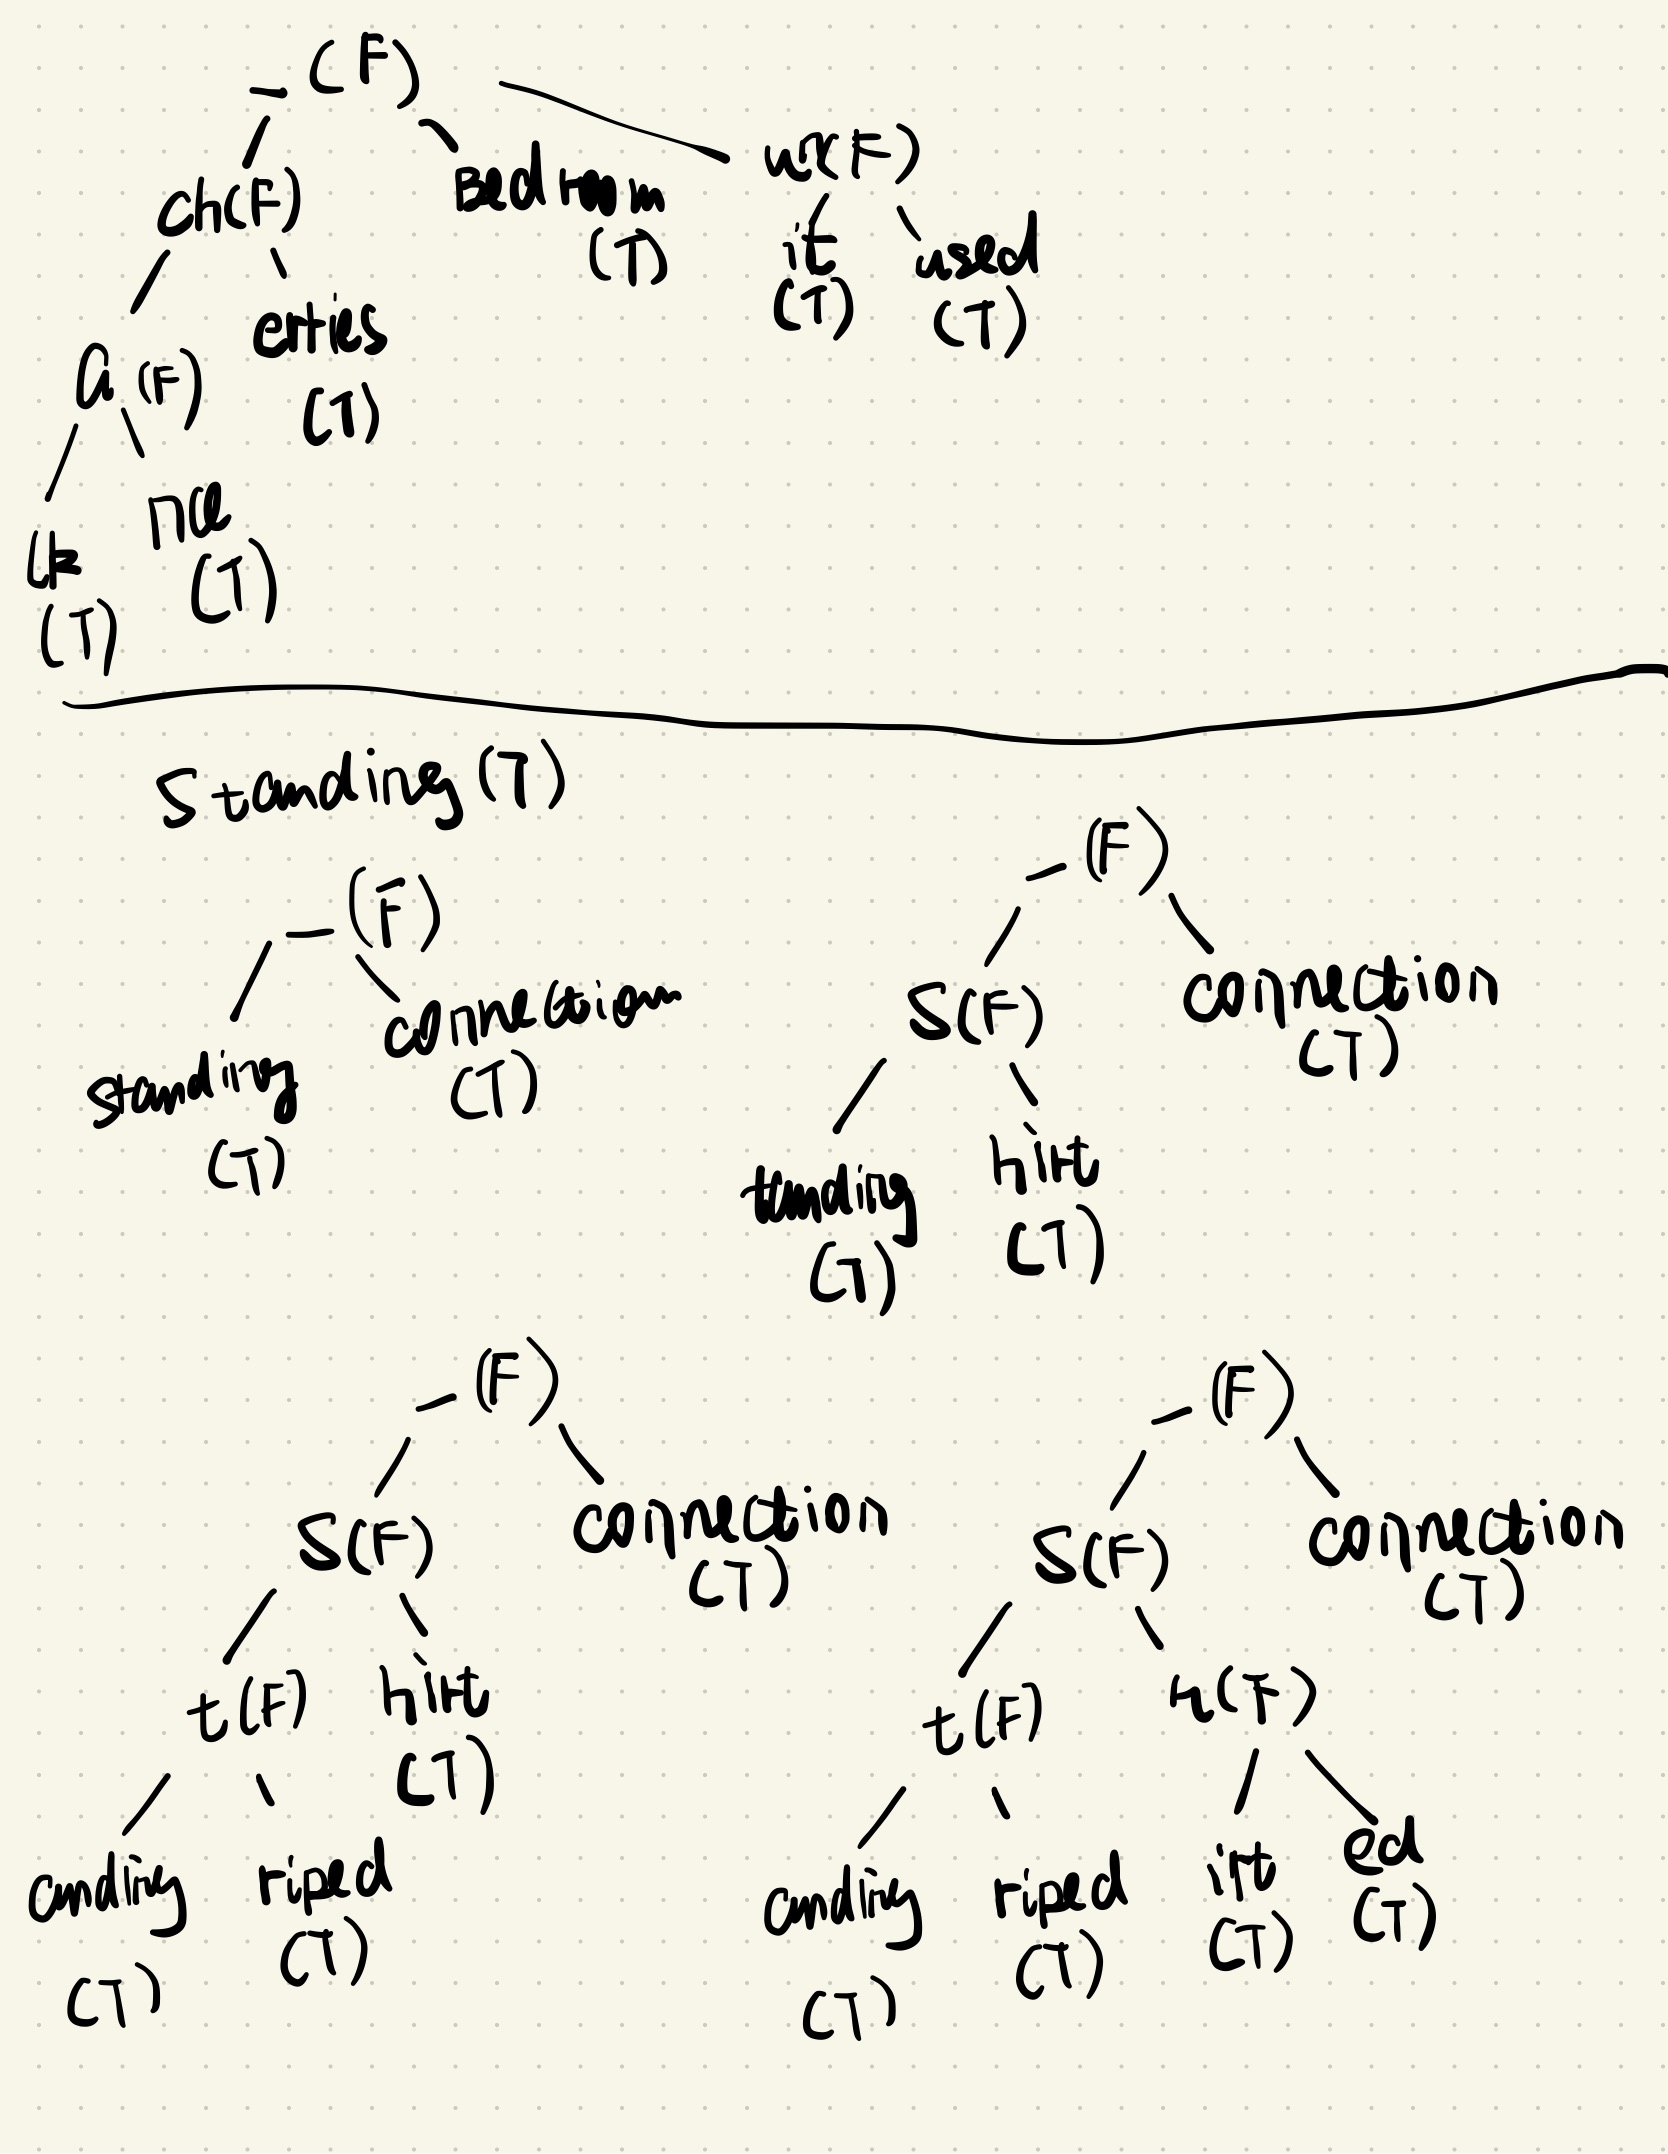 - (F)
ch(F) Bedroom (T) ur(F)
it (T) used (T)
a (F) erties (T)
lk (T) nce (T)
Standing (T)
- (F)
standing (T) connection (T)
- (F)
S(F) connection (T)
tanding (T) hirt (T)
- (F)
S(F) connection (T)
t(F) hirt (T)
anding (T) riped (T)
- (F)
S(F) connection (T)
t(F) h(F)
anding (T) riped (T) irt (T) ed (T)